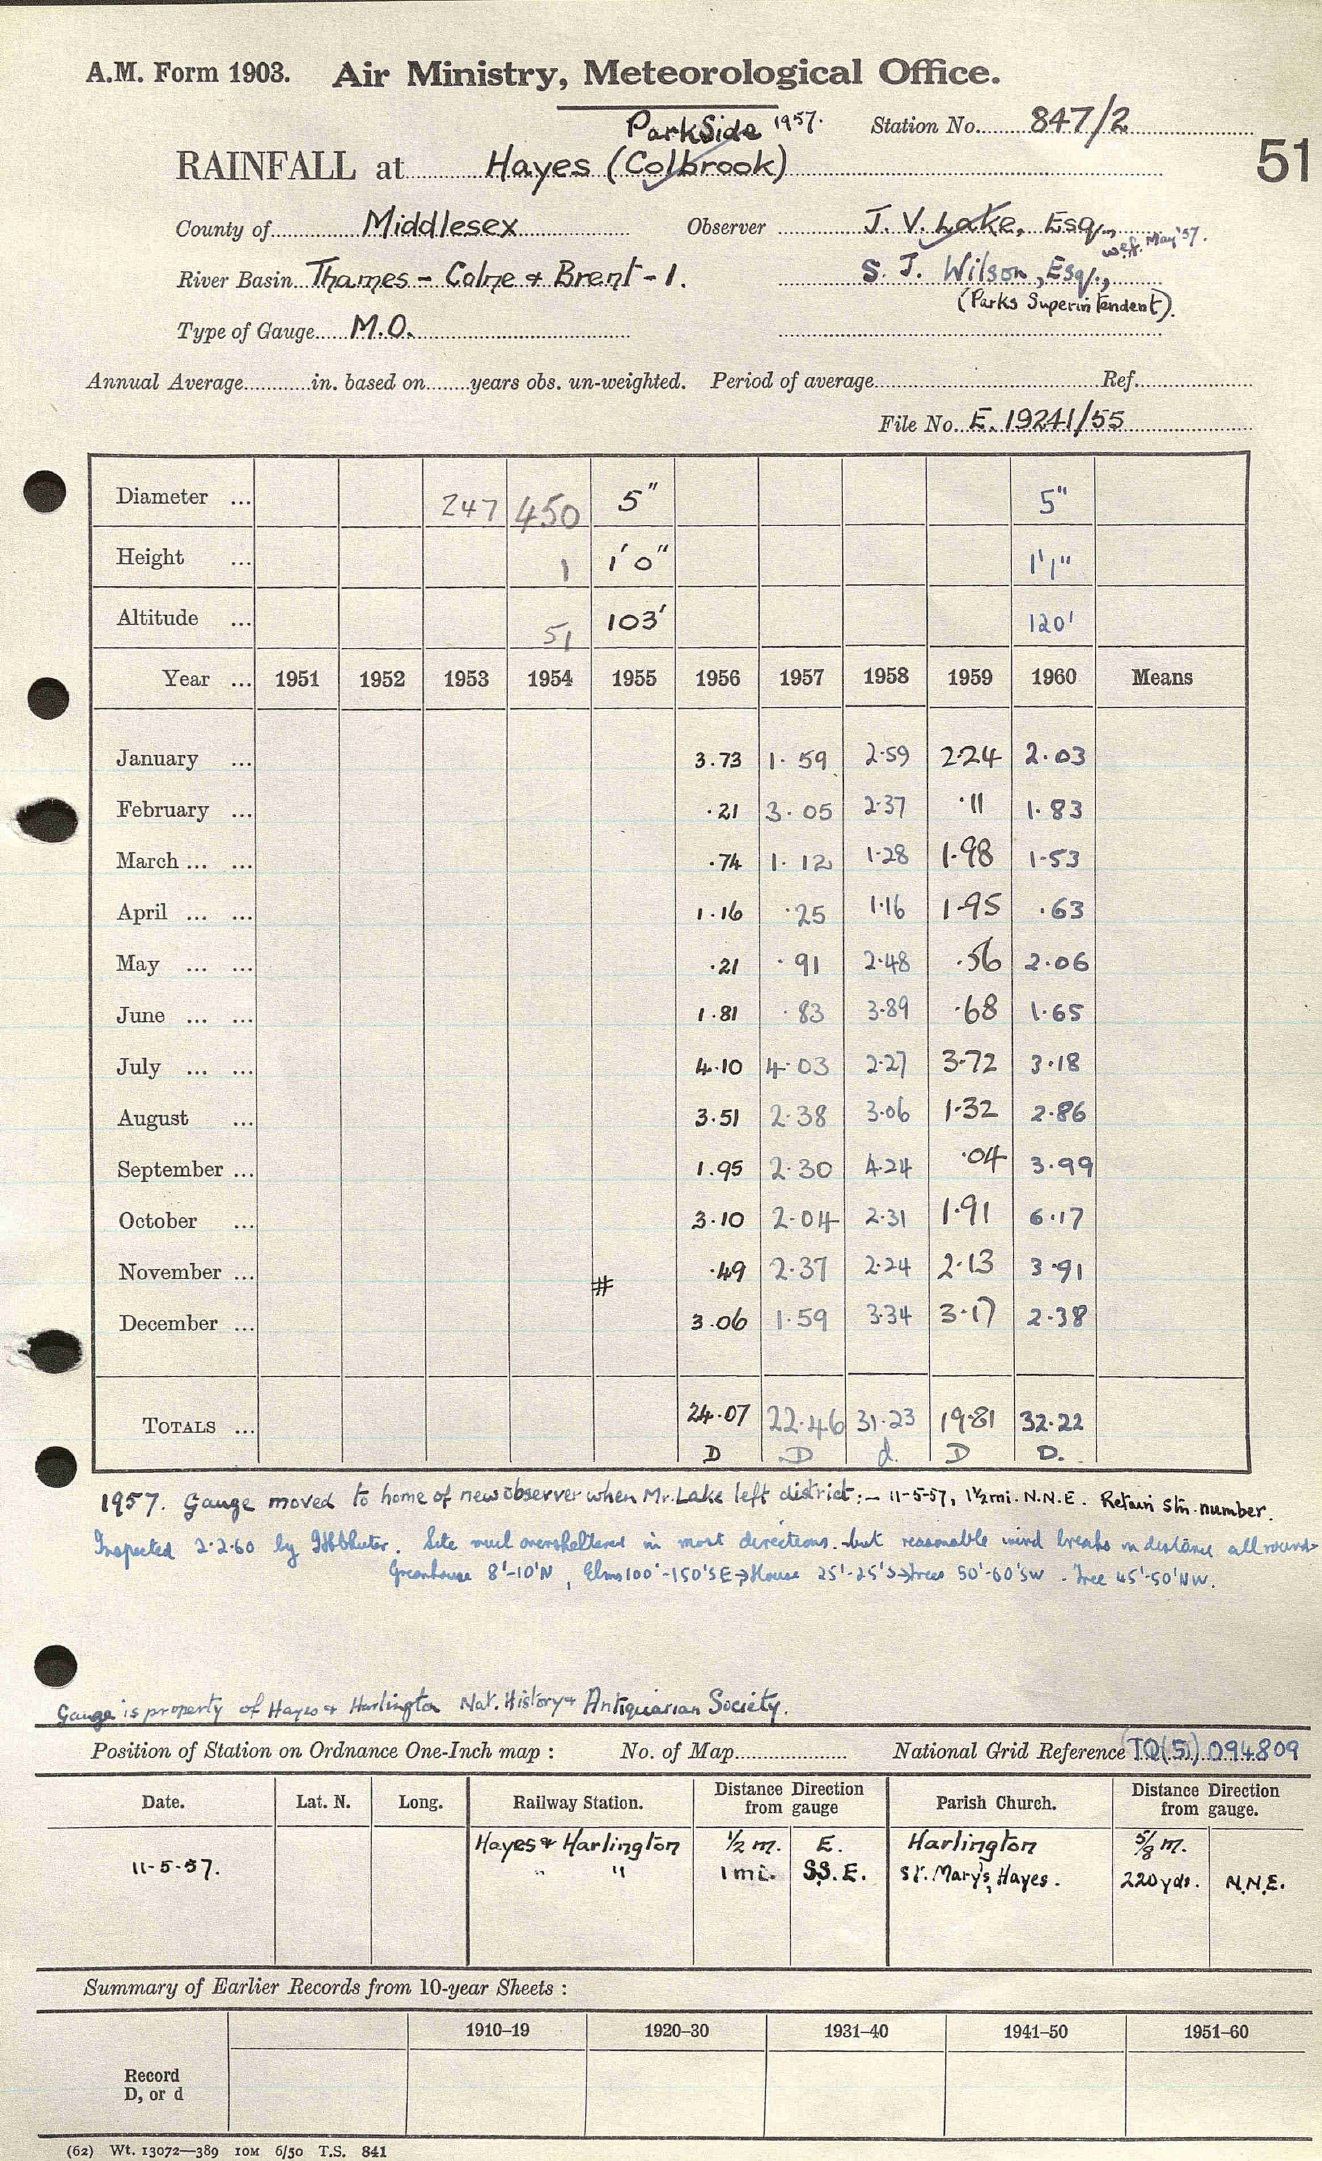 A.M. Form 1903. Air Ministry, Meteorological Office.
ParkSide 1957. Station No. 847/2
RAINFALL at Hayes (Colbrook) 51
County of Middlesex Observer J. V. Lake, Esq.,
w.e.f. May '57.
River Basin Thames - Colne & Brent - 1. S. J. Wilson, Esq.,
(Parks Superintendent).
Type of Gauge M.O.
Annual Average in. based on years obs. un-weighted. Period of average Ref.
File No. E. 19241/55
Diameter ... 247 450 5" 5"
Height ... 1 1'0" 1'1"
Altitude ... 51 103' 120'
Year ... 1951 1952 1953 1954 1955 1956 1957 1958 1959 1960 Means
January ... 3.73 1.59 2.59 2.24 2.03
February ... .21 3.05 2.37 .11 1.83
March ... ... .74 1.12 1.28 1.98 1.53
April ... ... 1.16 .25 1.16 1.95 .63
May ... ... .21 .91 2.48 .56 2.06
June ... ... 1.81 .83 3.89 .68 1.65
July ... ... 4.10 4.03 2.27 3.72 3.18
August ... 3.51 2.38 3.06 1.32 2.86
September ... 1.95 2.30 4.24 .04 3.99
October ... 3.10 2.04 2.31 1.91 6.17
November ... # .49 2.37 2.24 2.13 3.91
December ... 3.06 1.59 3.34 3.17 2.38
TOTALS ... 24.07 22.46 31.23 19.81 32.22
D D d. D D.
1957. Gauge moved to home of new observer when Mr. Lake left district:- 11-5-57, 1½ mi. N.N.E. Retain Stn. number.
Inspected 2.2.60 by Site well oversheltered in most directions. but reasonable wind breaks in distance all round-
Greenhouse 8'-10'N, Elms 100'-150'SE → House 25'-25'S → Trees 50'-60'SW - Tree 45'-50'NW.
Gauge is property of Hayes & Harlington Nat. History & Antiquarian Society.
Position of Station on Ordnance One-Inch map : No. of Map National Grid Reference TQ(51) 094809
Date. Lat. N. Long. Railway Station. Distance Direction from gauge Parish Church. Distance Direction from gauge.
Hayes & Harlington ½ m. E. Harlington 5/8 m.
11-5-57. " " 1 mi. S.S.E. St. Mary's, Hayes. 220 yds. N.N.E.
Summary of Earlier Records from 10-year Sheets :
1910–19 1920–30 1931–40 1941–50 1951–60
Record
D, or d
(62) Wt. 13072—389 10M 6/50 T.S. 841